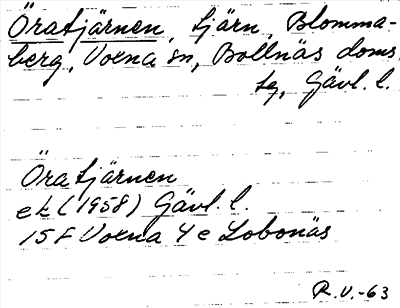 Öratjärnen, tjärn, Blomma-
berg, Voxna sn, Bollnäs doms.
tg, Gävl. l.
Öratjärnen
ek (1958) Gävl. l.
15F Voxna 4e Lobonäs
R.V.-63